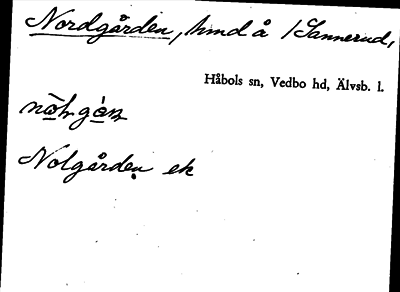 Nordgården, hmd å /Sannerud,
Håbols sn, Vedbo hd, Älvsb. l.
Nolgården ek